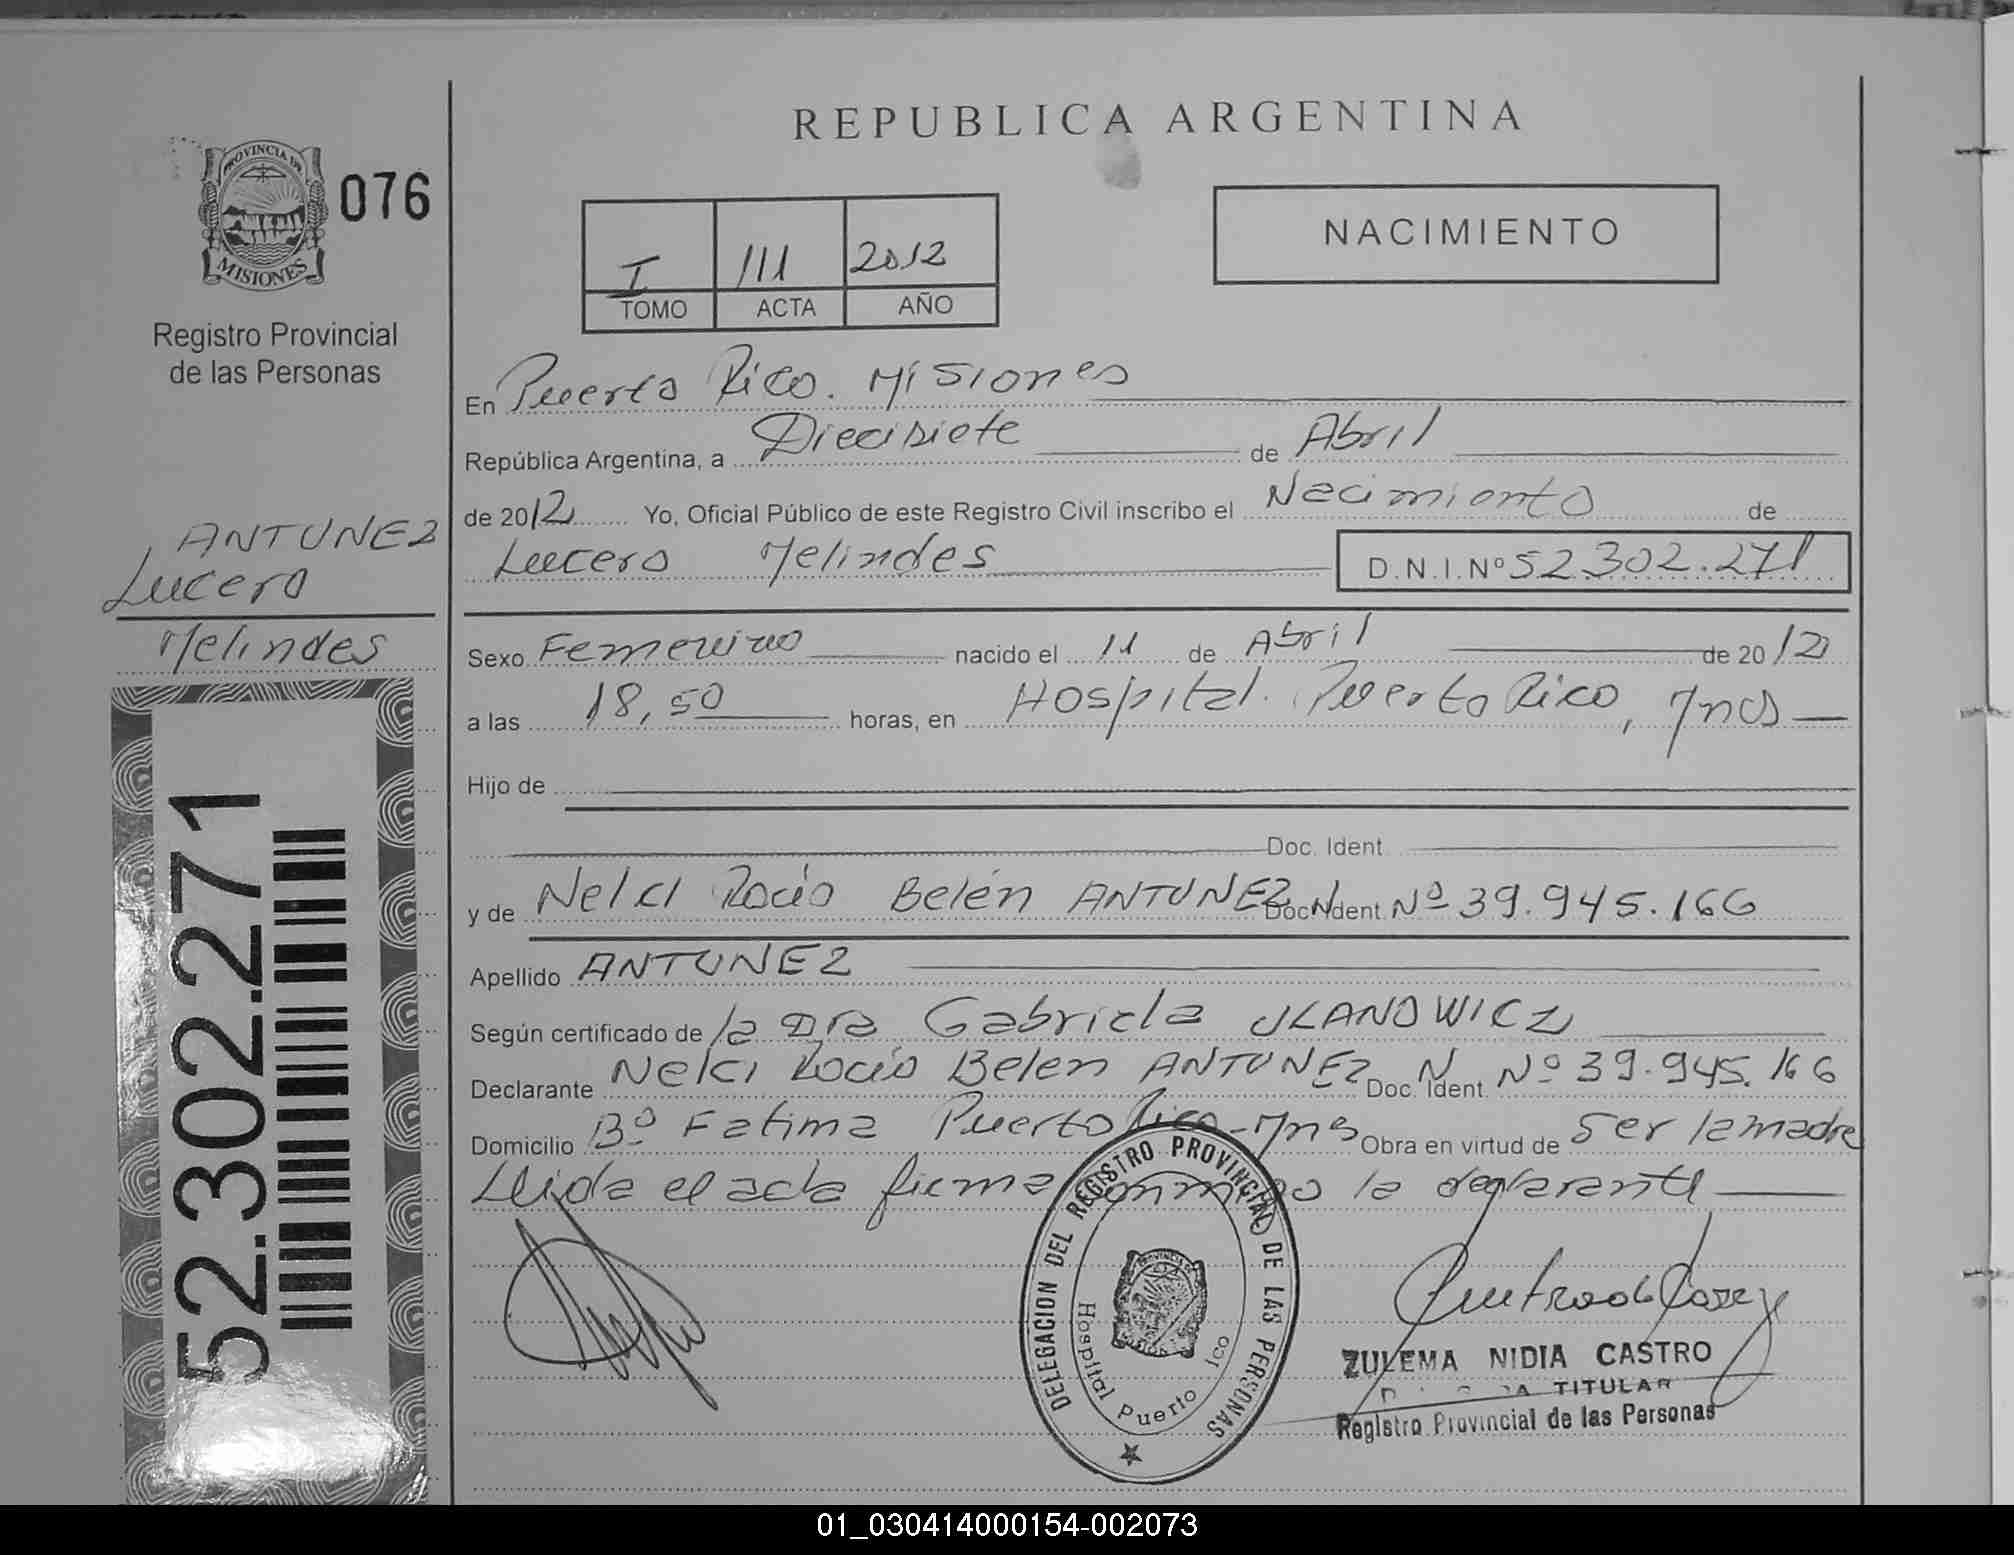 REPUBLICA ARGENTINA
PROVINCIA DE
MISIONES
076
Registro Provincial
de las Personas
NACIMIENTO
I 111 2012
TOMO ACTA AÑO
En Puerto Rico. Misiones
República Argentina, a Diecisiete de Abril
de 2012 Yo, Oficial Público de este Registro Civil inscribo el Nacimiento de
Lucero Melindes D.N.I.Nº 52.302.271
ANTUNEZ
Lucero
Melindes
Sexo Femenino nacido el 11 de Abril de 2012
a las 18,50 horas, en Hospital. Puerto Rico, Mnes
Hijo de
Doc. Ident.
y de Nelci Rocío Belén ANTUNEZ Doc. Ident. Nº 39.945.166
Apellido ANTUNEZ
Según certificado de la Dra Gabriela ULANOWICZ
Declarante Nelci Rocío Belen ANTUNEZ Doc. Ident. Nº 39.945.166
Domicilio Bº Fatima Puerto Rico - Mnes Obra en virtud de Ser la madre
Leida el acta firma conmigo la declarante
52.302.271
DELEGACION DEL REGISTRO PROVINCIAL DE LAS PERSONAS
Hospital Puerto ico
ZULEMA NIDIA CASTRO
TITULAR
Registro Provincial de las Personas
01_030414000154-002073